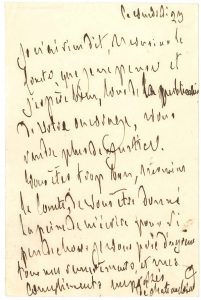 Ce samedi 23
Je n'ai rien dit, Monsieur le
Comte, que je ne pense et
j'espère bien, lors de la publication
de votre ouvrage, vous
rendre plus de justice.
Vous êtes trop bon, Monsieur
le Comte, de vous être donné
la peine de m'écrire pour si
peu de chose, je vous prie d'agréer
tous mes remerciements, et mes
compliments empressés
Chateaubriand